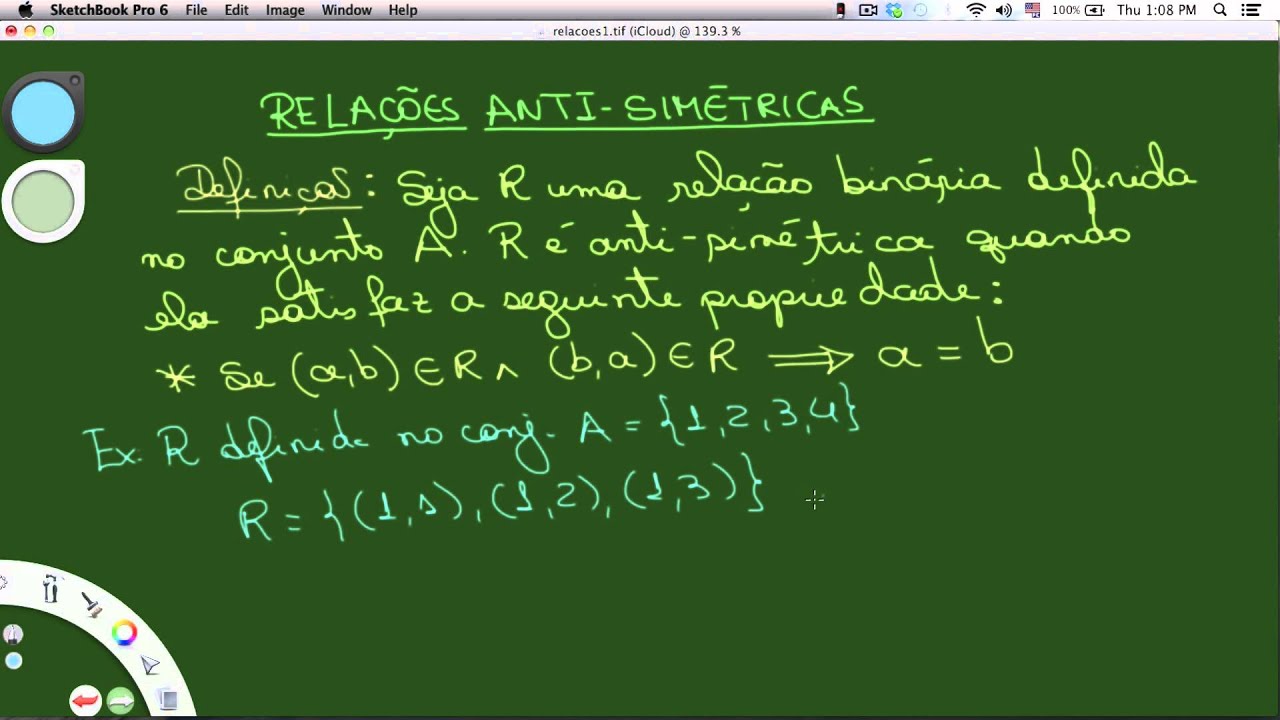 SketchBook Pro 6 File Edit Image Window Help 100% Thu 1:08 PM
relacoes1.tif (iCloud) @ 139.3 %
RELAÇÕES ANTI-SIMÉTRICAS
Definiçao: Seja R uma relação binária definida
no conjunto A. R é anti-simétrica quando
ela satisfaz a seguinte propriedade:
* Se (a,b) ∈ R ∧ (b,a) ∈ R ⟹ a = b
Ex. R definida no conj. A = {1,2,3,4}
R = {(1,1), (1,2), (1,3)}